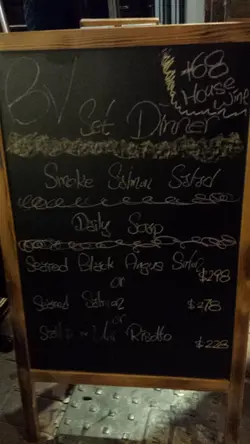 BV
+68
House
Wine
Set Dinner
Smoke Salmon Salad
Daily Soup
Seared Black Angus Sirloin
$298
or
Seared Salmon
$278
or
Risotto
$228